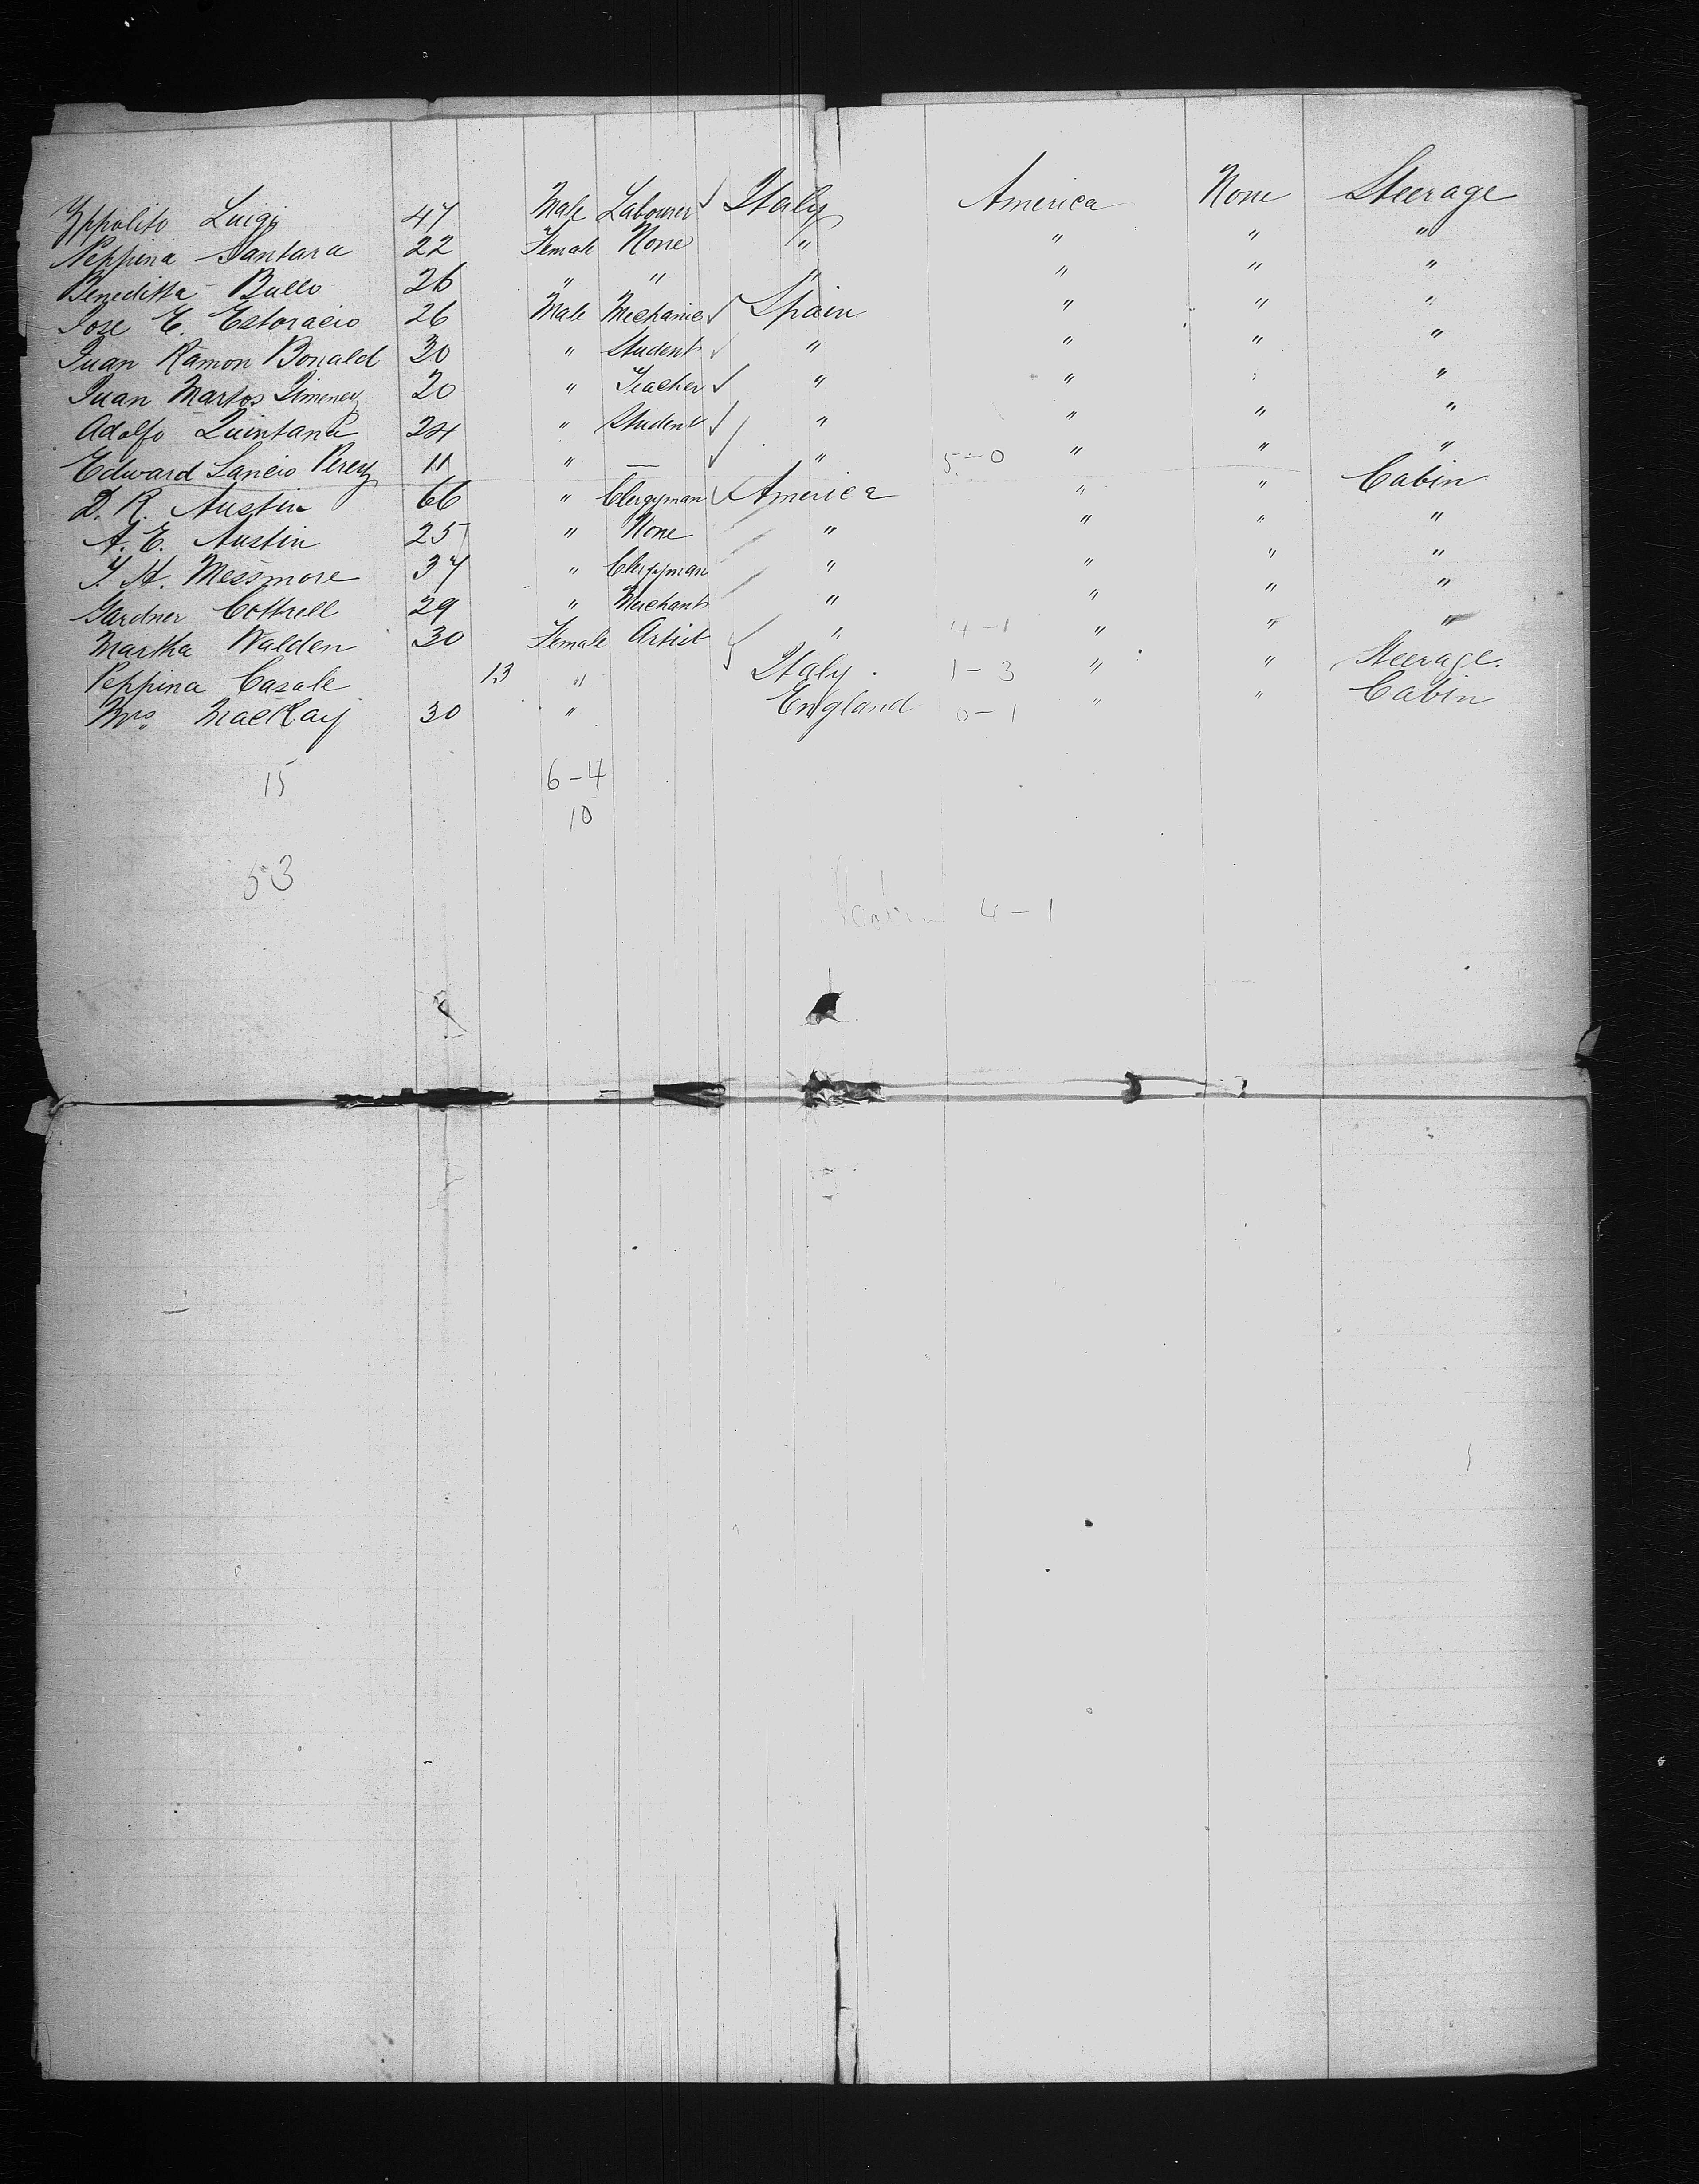 Yppolito Luigi 47 Male Labourer Italy America None Steerage
Peppina Santara 22 Female None " " " "
Beneditta Bullo 26 " " " " " "
Jose E. Estoracio 26 Male Mechanic Spain " " "
Juan Ramon Bonald 30 " Student " " " "
Juan Martos Jimenez 20 " Teacher " " " "
Adolfo Quintana 24 " Student " " " "
Edward Lancio Perez 11 " — " 5-0 " " "
D. R. Austin 66 " Clergyman America " " Cabin
A. E. Austin 25 " None " " " "
J. H. Messmore 37 " Clergyman " " " "
Gardner Cottrell 29 " Merchant " " " "
Martha Walden 30 Female Artist " 4-1 " " "
Peppina Casale 13 " Italy. 1-3 " " Steerage.
Mrs. MacKay 30 " England 0-1 " " Cabin
15 6-4
10
53
4-1